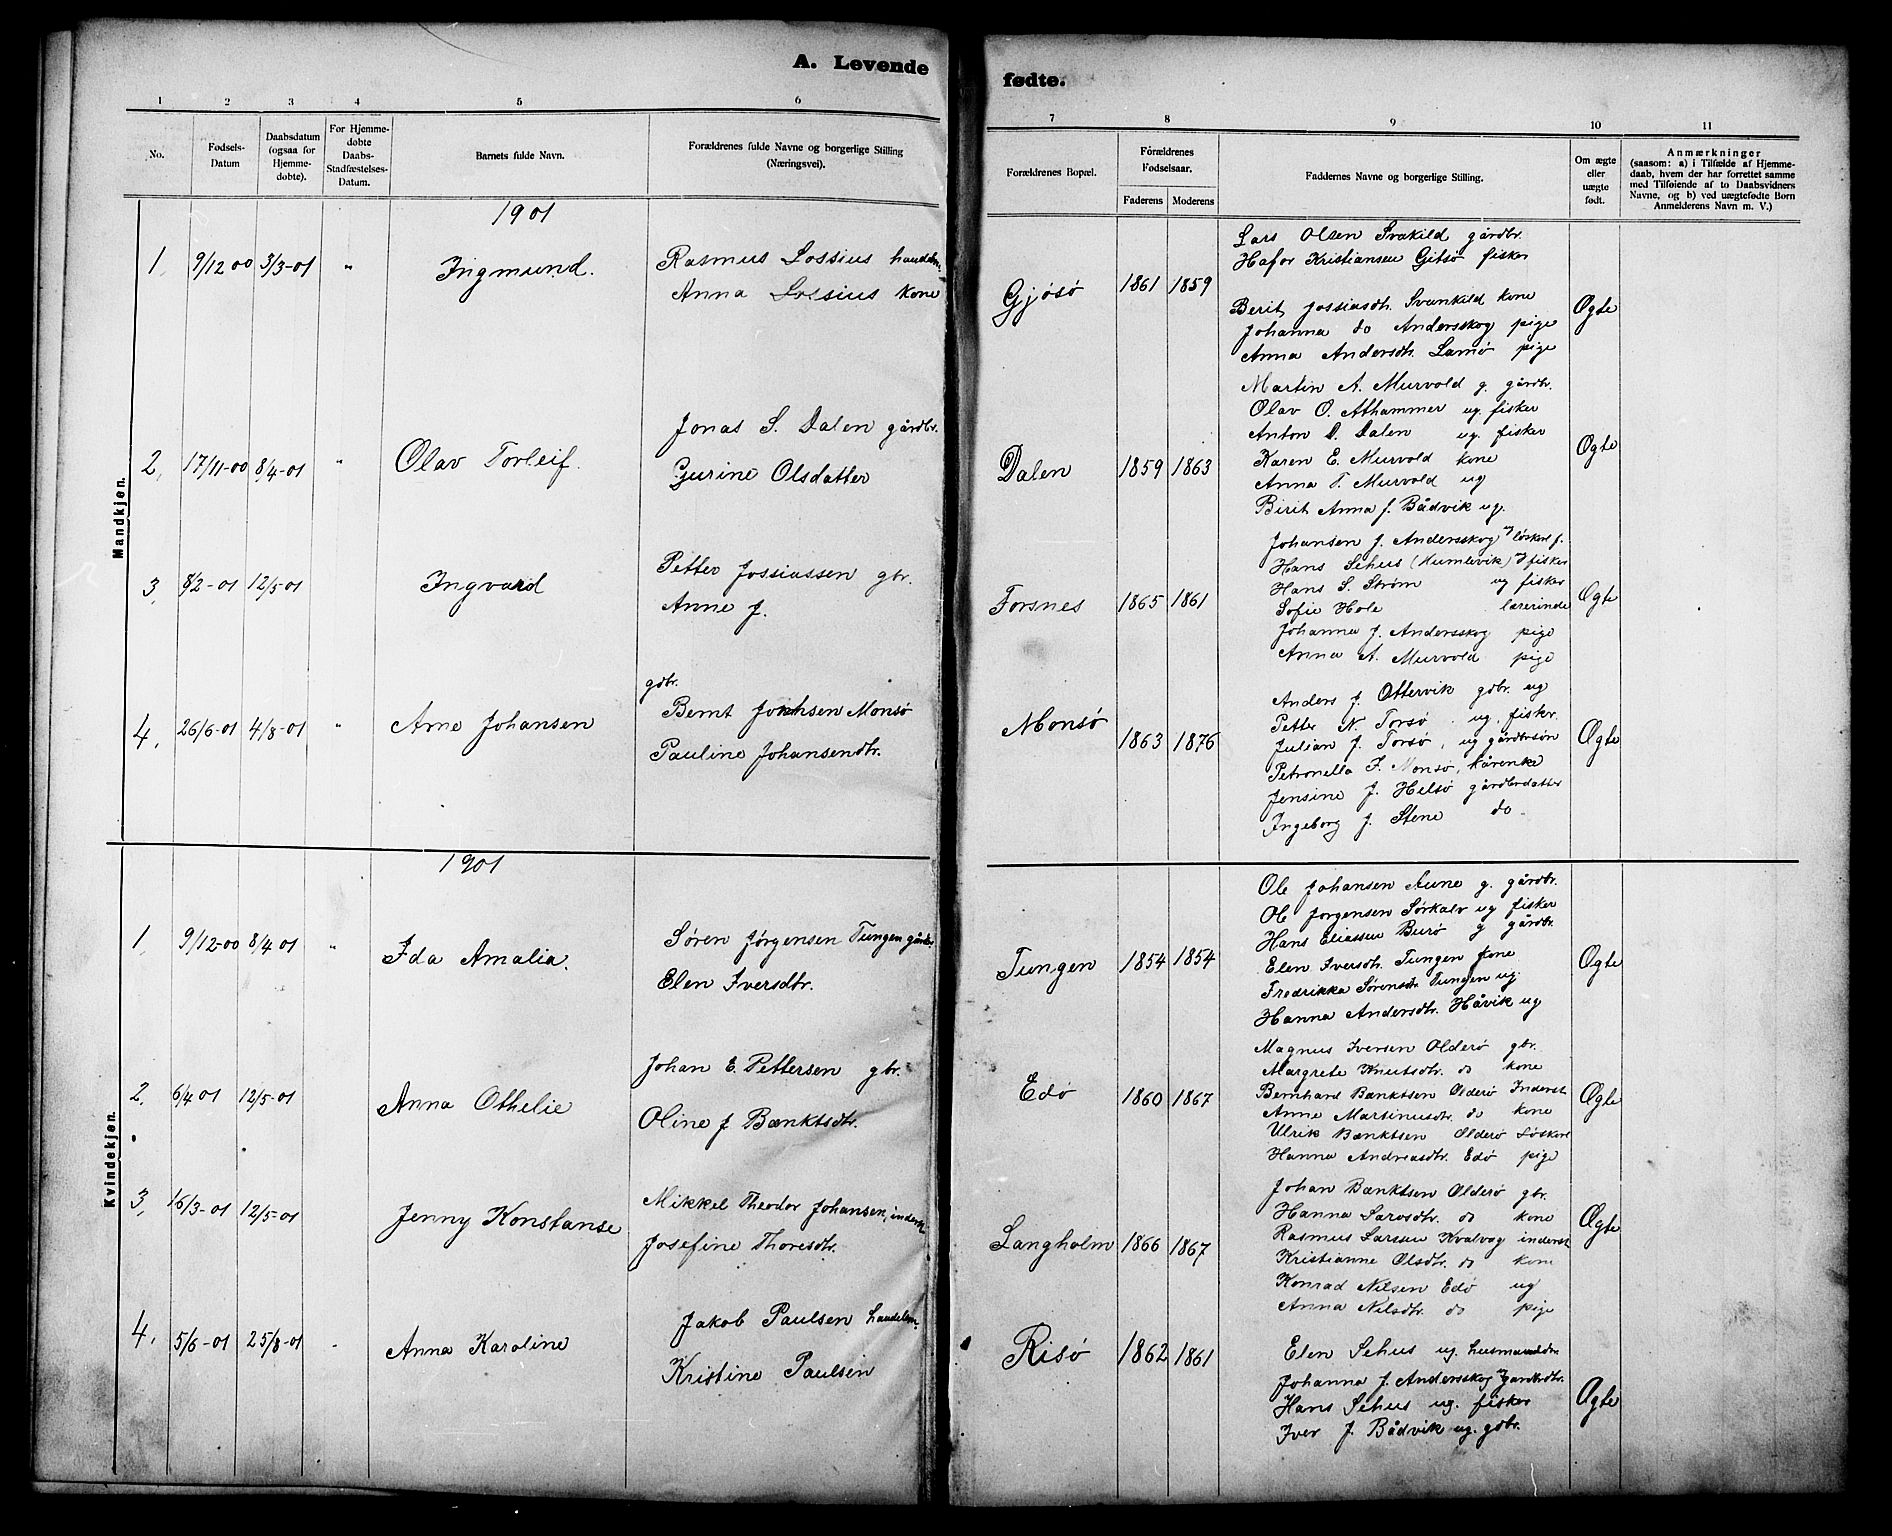 A. Levende fødte.
1 2 3 4 5 6 7 8 9 10 11
No.
Fødsels-
Datum
Daabsdatum
(ogsaa for
Hjemme-
døbte).
For Hjemme-
døbte
Daabs-
Stadfæstelses-
Datum.
Barnets fulde Navn.
Forældrenes fulde Navne og borgerlige Stilling
(Næringsvei).
Forældrenes Bopæl.
Forældrenes
Fødselsaar.
Faderens Moderens
Faddernes Navne og borgerlige Stilling.
Om ægte
eller
uægte
født.
Anmærkninger
(saasom: a) i Tilfælde af Hjemme-
daab, hvem der har forrettet samme
med Tilføiende af to Daabsvidners
Navne, og b) ved uægtefødte Børn
Anmelderens Navn m. V.)
Mandkjøn.
1901
1. 9/12 00 3/3-01 " Ingmund.
Rasmus Lossius handelsm.
Anna Lossius kone
Gjøsø 1861 1859
Lars Olsen Svakild gårdbr.
Hafor Kristiansen Gitsø fisker
Berit Jossiasdtr. Svankild kone
Johanna do Andersskog pige
Anna Andersdtr. Lamø pige
Ægte
2. 17/11-00 8/4-01 " Olav Torleif.
Jonas S. Dalen gårdbr.
Gurine Olsdatter
Dalen 1859 1863
Martin A. Murvold g. gårdbr.
Olav O. Athammer ug. fisker
Anton D. Dalen ug. fisker
Karen E. Murvold kone
Anna T. Murvold ug
Birit Anna J. Bådvik ug.
Ægte
3. 8/2-01 12/5-01 Ingvard
Petter Jossiassen gbr.
Anne J.
Torsnes 1865 1861
Johansen J. Andersskog ug løskarl f.
Hans Sehus (Kumlevik) ug fisker
Hans S. Strøm ug fisker
Sofie Hole lærerinde
Johanna J. Andersskog pige
Anna A. Murvold pige
Ægte
4. 26/6-01 4/8-01 " Arne Johansen
gdbr.
Bernt Johnsen Monsø
Pauline Johansendtr.
Monsø 1863 1876
Anders J. Ottervik gdbr. ug
Petter N. Torsø ug. fisker.
Julian J. Torsø, ug gårdbrsøn
Petronella F. Monsø, kårenke
Jensine J. Helsø gårdbrdatter
Ingeborg J. Stene do
Ægte
Kvindekjøn.
1901
1. 9/12-00 8/4-01 " Ida Amalia.
Søren Jørgensen Tungen gårdbr.
Elen Iversdtr.
Tungen 1854 1854
Ole Johansen Aune g. gårdbr.
Ole Jørgensen Sørkalv ug fisker
Hans Eliassen Burø g gårdbr.
Elen Iversdtr. Tungen kone
Fredrikka Sørensdtr. Tungen ug.
Hanna Andersdtr. Håvik ug
Ægte
2. 6/4 01 12/5-01 Anna Othelie
Johan E. Pettersen gbr.
Oline J. Bænktsdtr.
Edø 1860 1867
Magnus Iversen Olderø gbr.
Margrete Knutsdtr. do kone
Bernhard Bænktsen Olderø Inderst
Anne Martinusdtr. do kone
Ulrik Bænktsen Olderø Løskarl
Hanna Andreasdtr. Edø pige
Ægte
3. 16/3-01 12/5-01 Jenny Konstanse
Mikkel Theodor Johansen, inderst
Josefine Thoresdtr.
Langholm 1866 1867
Johan Bænktsen Olderø gbr.
Hanna Larsdtr. do kone
Rasmus Larssen Kvalvag inderst
Kristianne Olsdtr. do kone
Konrad Nilsen Edø ug
Anna Nilsdtr. do pige
Ægte
4. 5/6-01 25/8-01 Anna Karoline
Jakob Paulsen handelsm.
Kristine Paulsen
Risø 1862 1861
Elen Sehus ug. husmandsdtr.
Johanna J. Andersskog ug gardbrdtr.
Hans Sehus ug. fisker
Iver J. Bådvik ug. gdbr.
Ægte